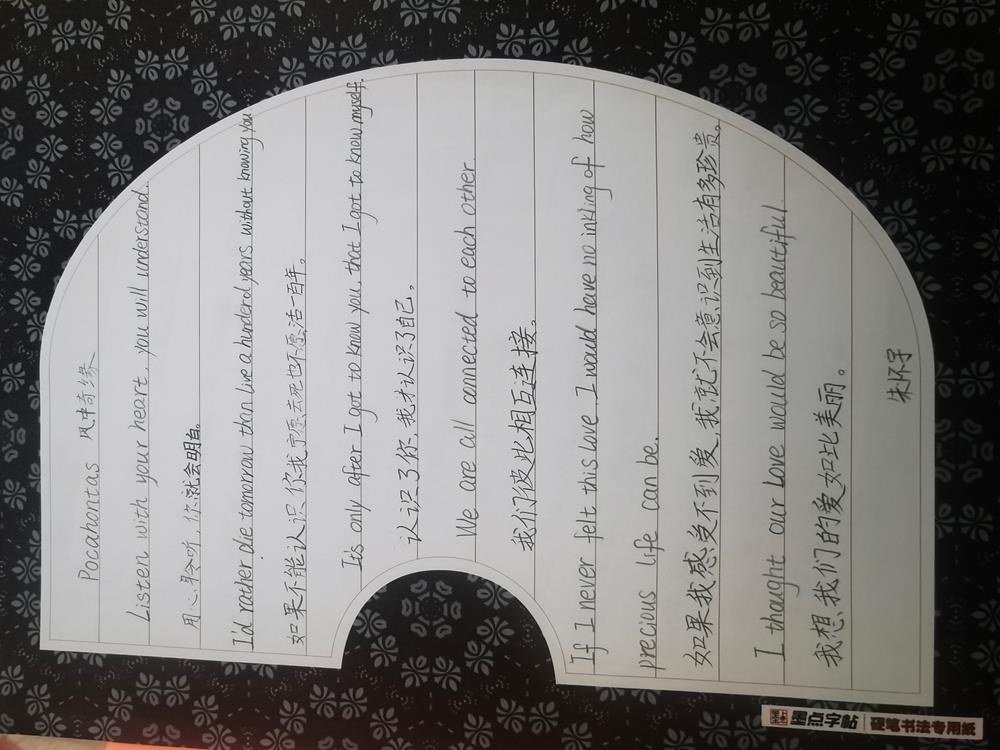 Pocahontas 风中奇缘
Listen with your heart, you will understand.
用心聆听，你就会明白。
I'd rather die tomorrow than live a hunderd years without knowing you
如果不能认识你我宁愿去死也不愿活一百年。
Its only after I got to know you, that I got to know myself.
认识了你，我才认识了自己。
We are all connected to each other.
我们彼此相互连接。
If I never felt this love. I would have no inkling of how
precious life can be.
如果我感受不到爱，我就不会意识到生活有多珍贵。
I thought our Love would be so beautiful.
我想我们的爱如此美丽。
墨点字帖 硬笔书法专用纸